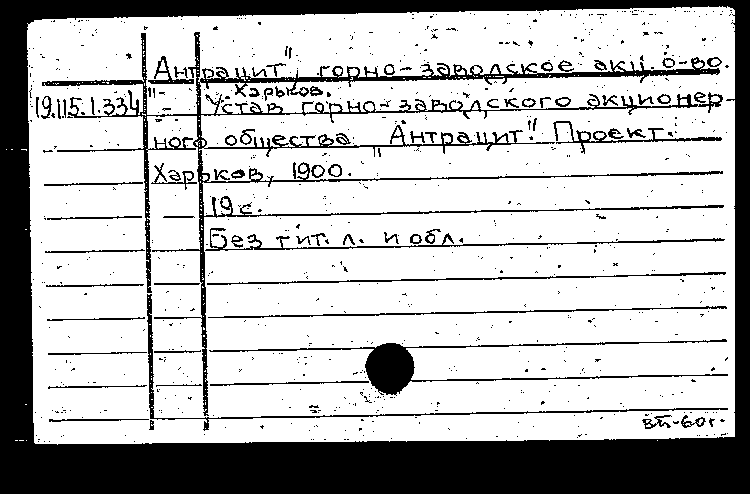 „Антрацит", горно-заводское акц. о-во.
Харьков.
19.115.1.334. Устав горно-заводского акционер-
ного общества „Антрацит". Проект.
Харьков, 1900.
19 с.
Без тит. л. и обл.